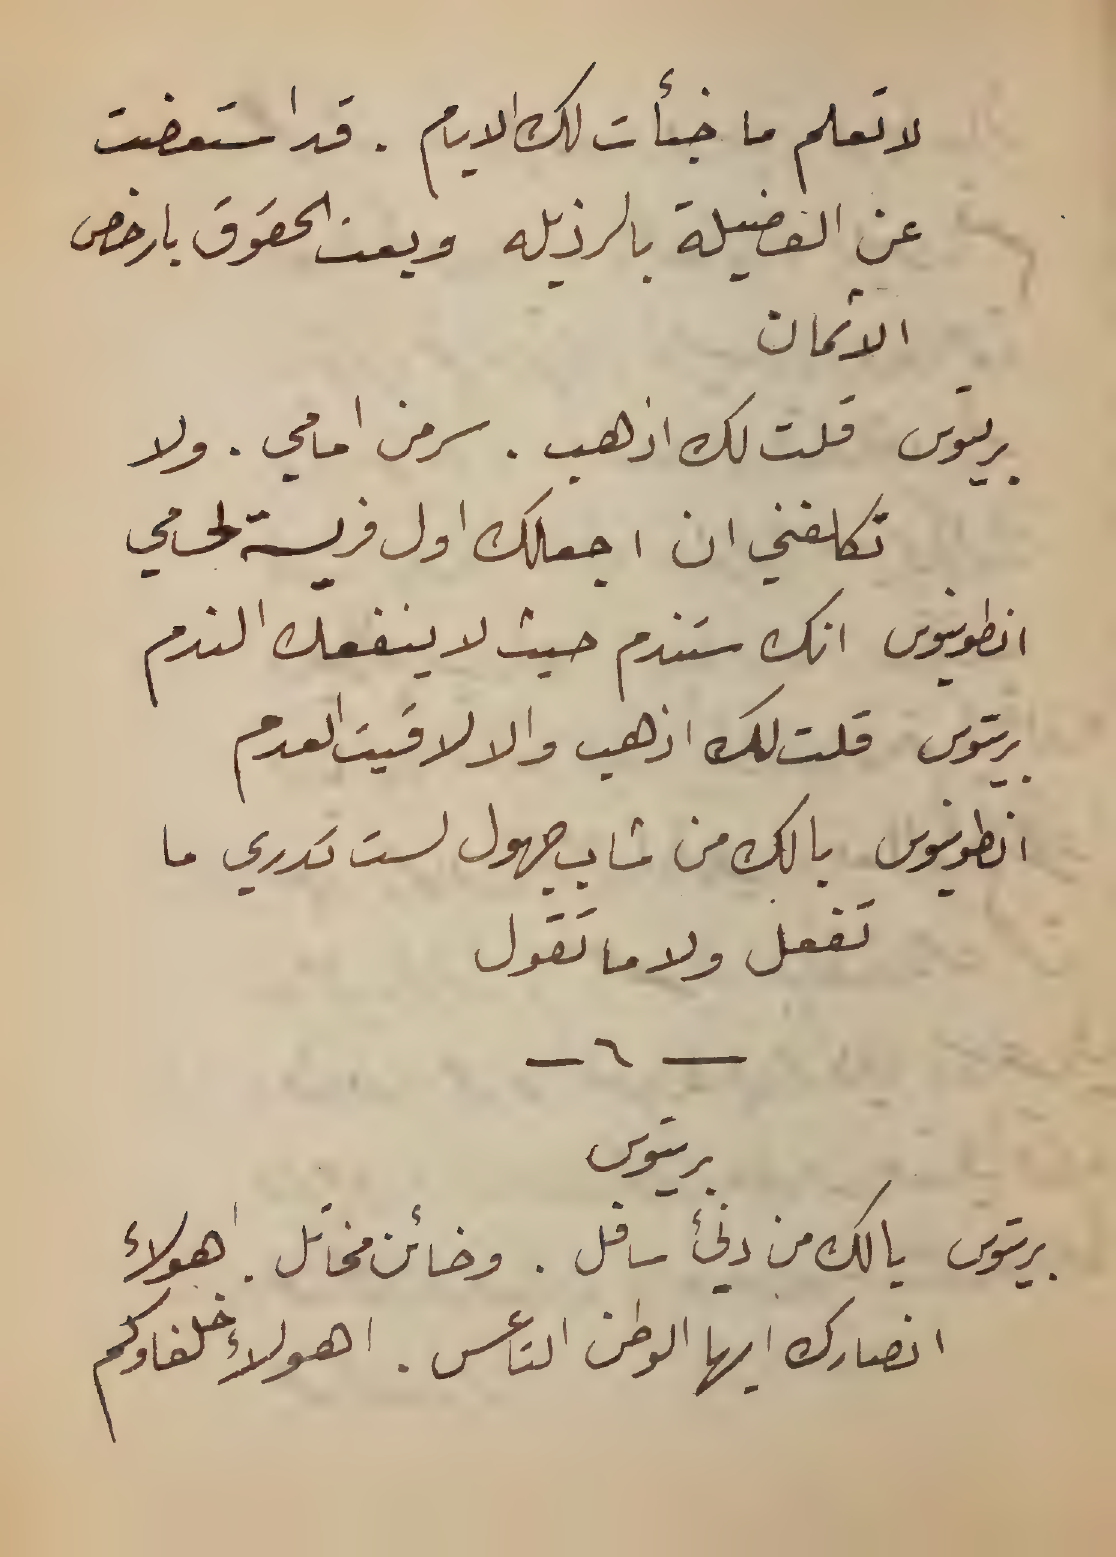 لا تعلم ما خبأت لك الايام . قد استعضت
عن الفضيلة بالرذيله وبعت الحقوق بارخص
الاثمان
بريتوس قلت لك اذهب . سر من امامي . ولا
تكلفني ان اجعلك اول فريسة لحسامي
انطونيوس انك ستندم حيث لا ينفعك الندم
بريتوس قلت لك اذهب والا لاقيت العدم
انطونيوس يالك من شاب جهول لست تدري ما
تفعل ولا ما تقول
— ٦ —
بريتوس
بريتوس يالك من دنئ سافل . وخائن مخاتل . اهولاء
انصارك ايها الوطن التاعس . اهولاء خلفاوكم